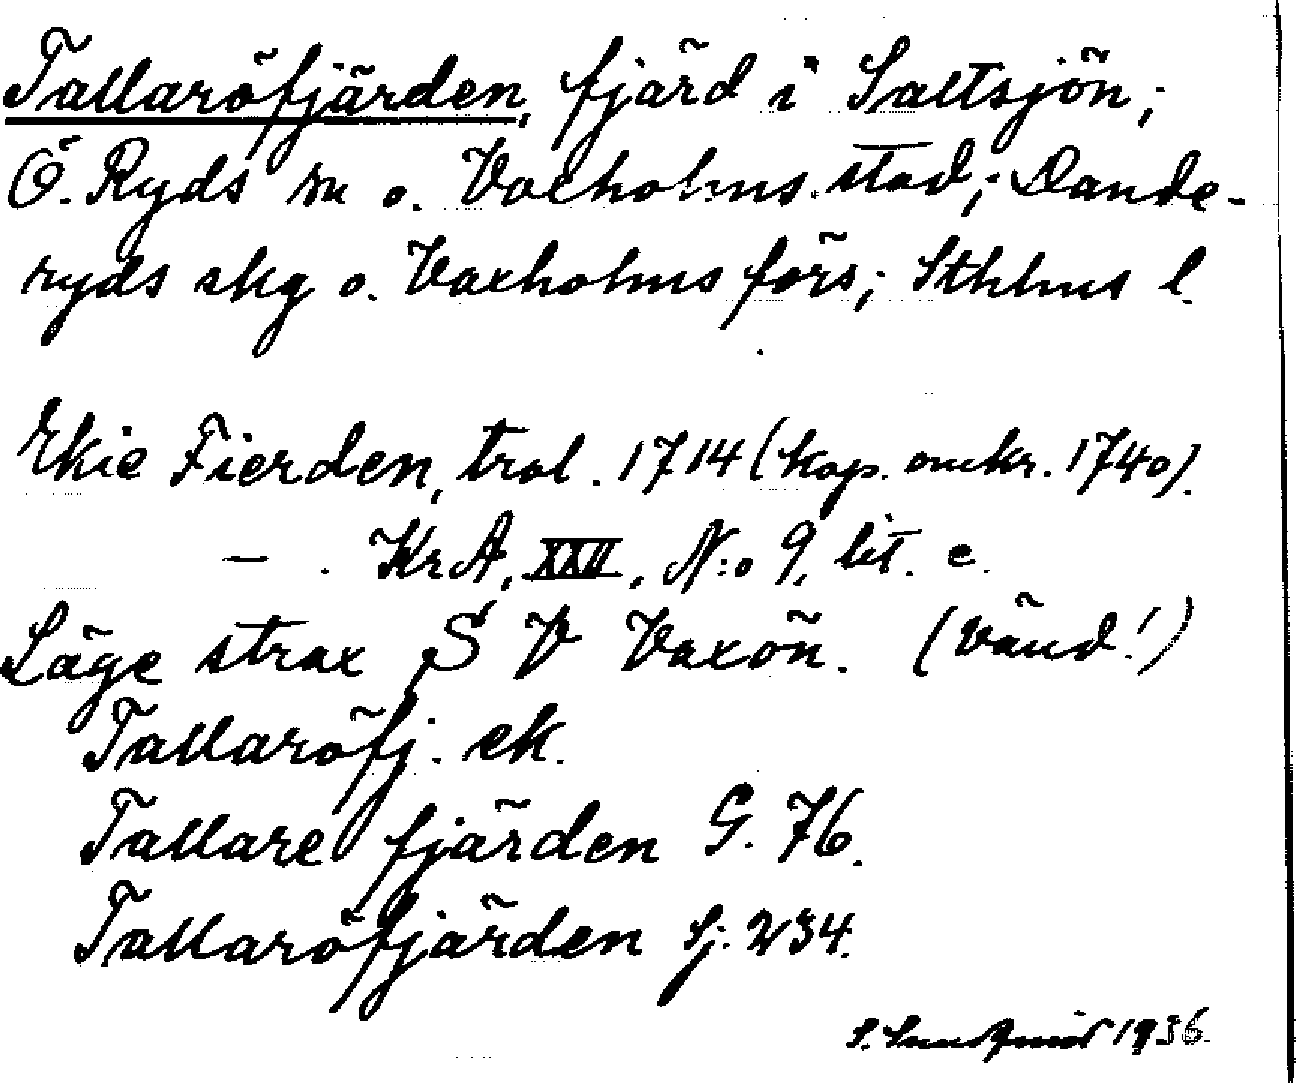 Tallaröfjärden, fjärd i Saltsjön;
Ö. Ryds sn o. Vaxholms stad; Dande-
ryds skg o. Vaxholms förs; Sthlms l.
Ekie Fierden, trol. 1714 (kop. omkr. 1740).
— . KrA, XXII, N:o 9, lit. c.
Läge strax S V Vaxön. (Vänd!)
Tallaröfj. ek.
Tallare fjärden G. 76.
Tallaröfjärden Sj. 234.
S. 1936.